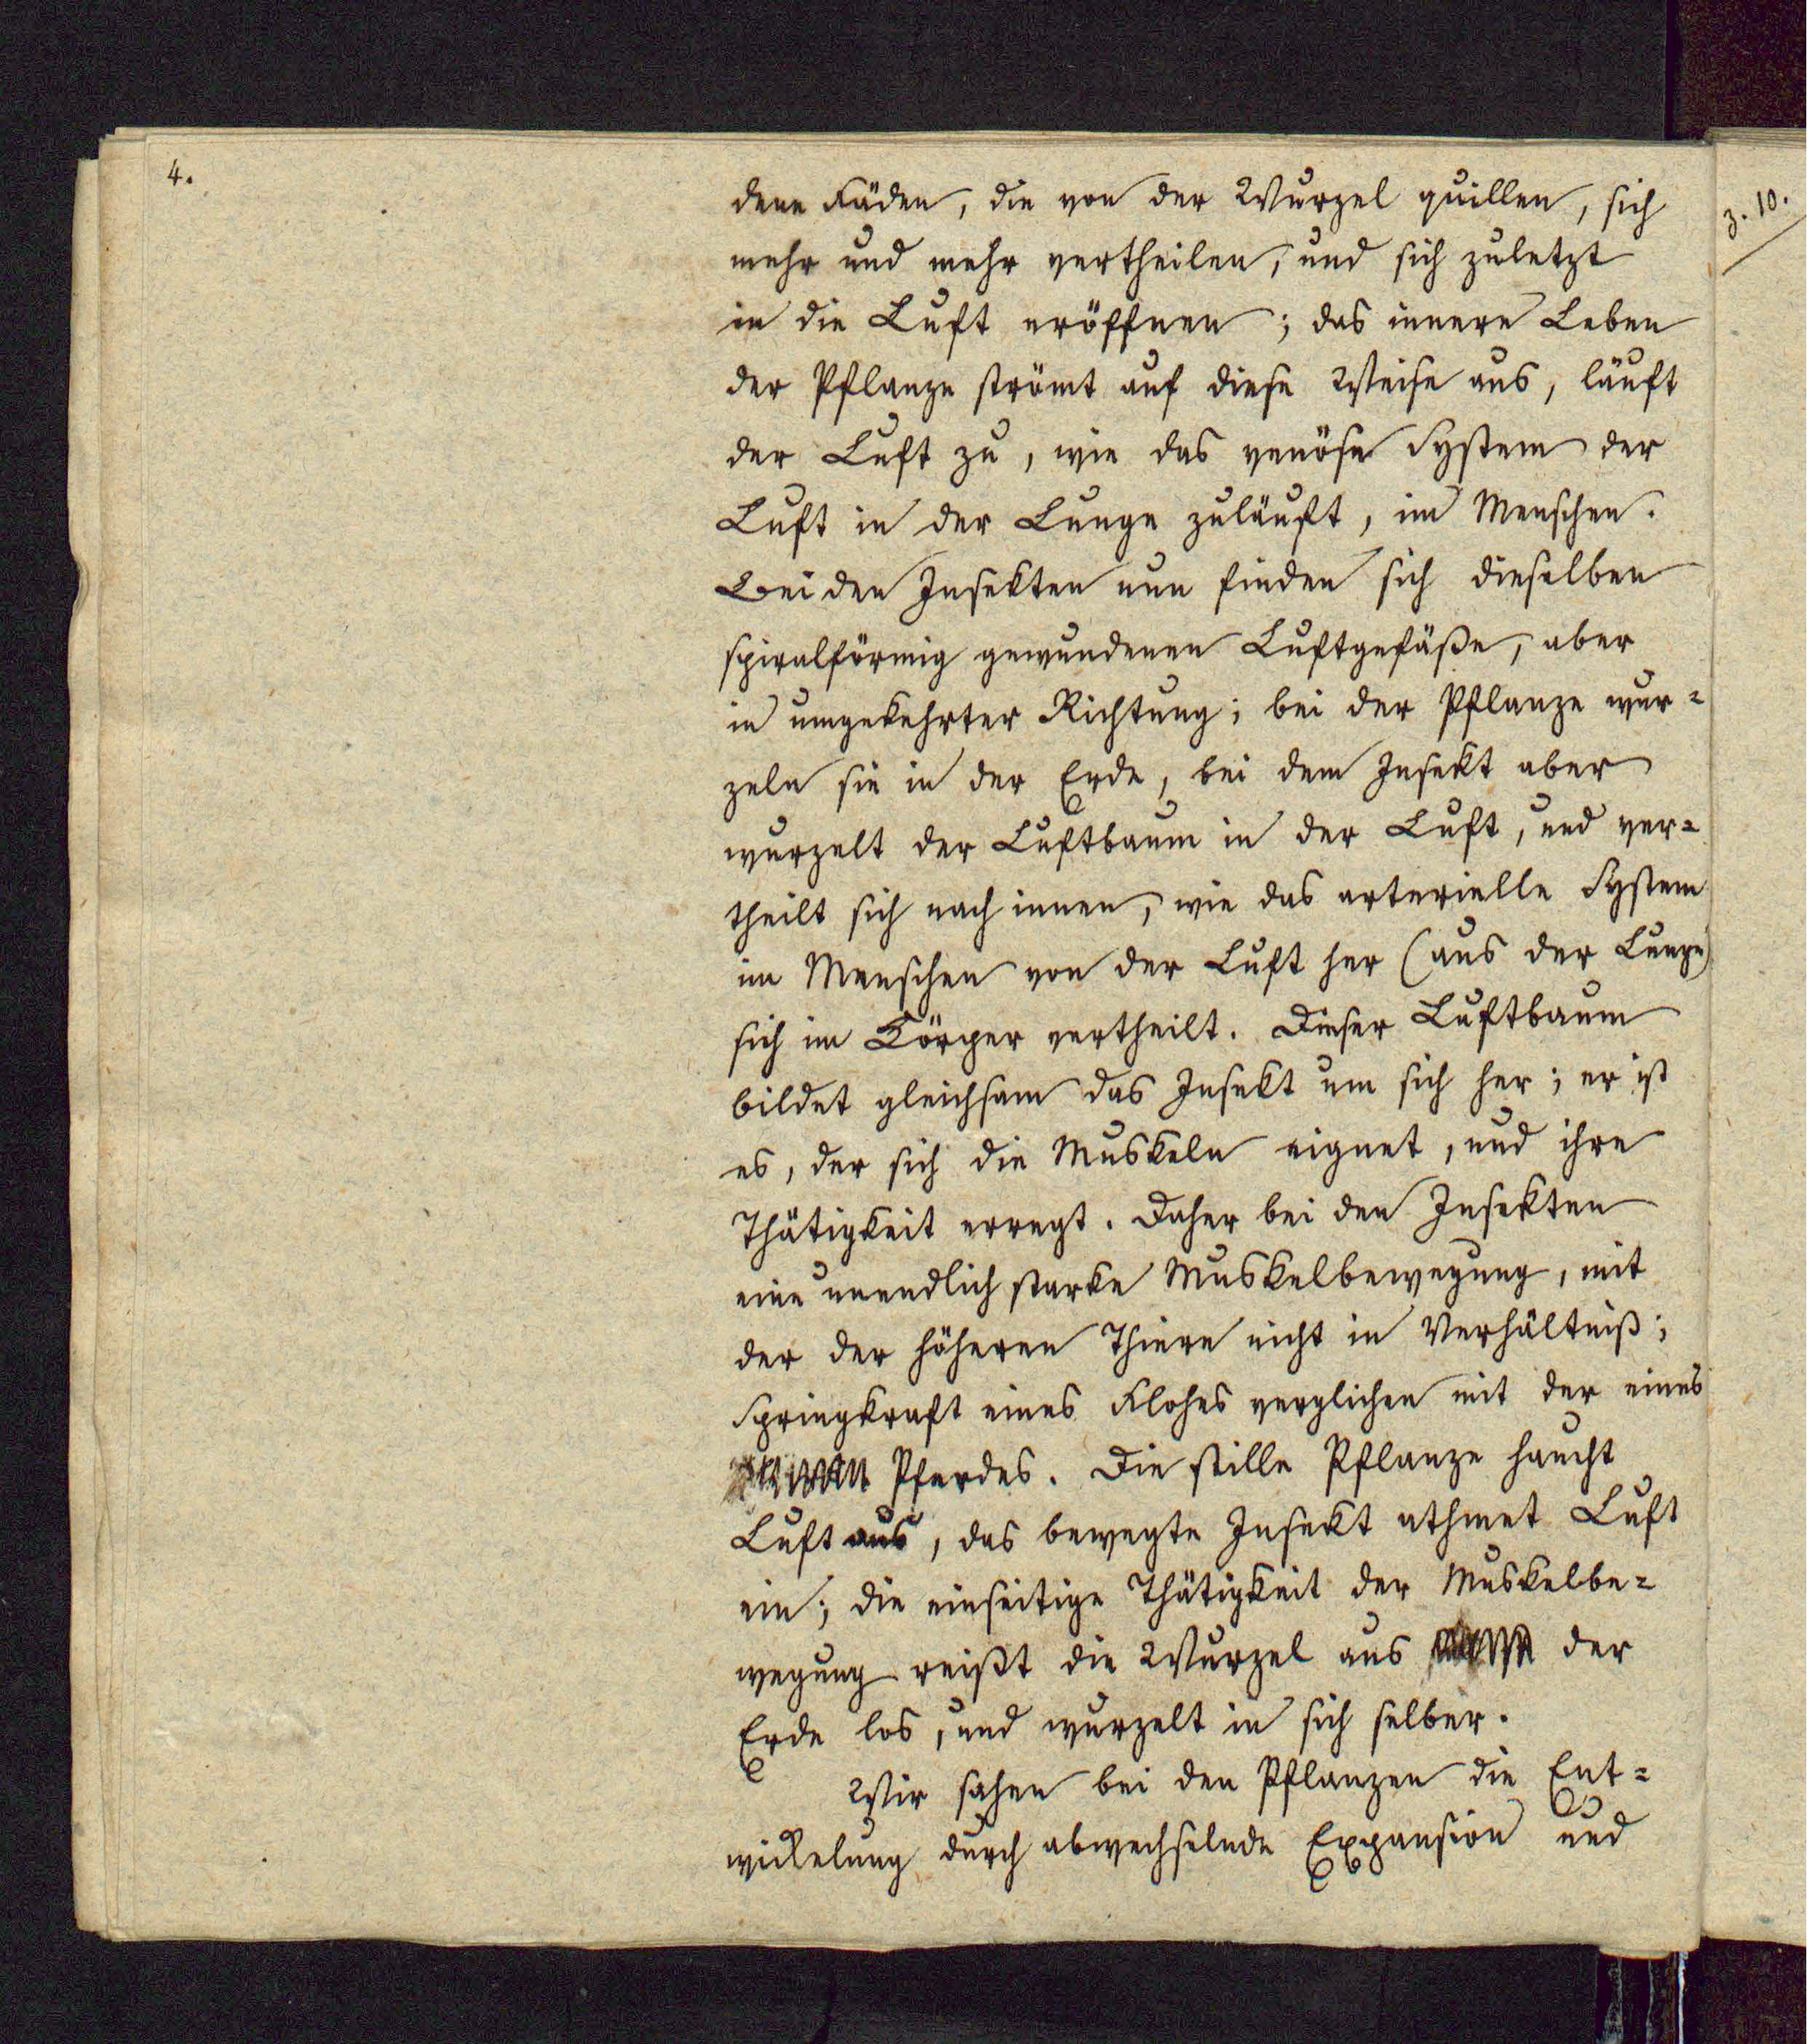 4.
dene Fäden, die von der Wurzel quillen, sich
mehr und mehr vertheilen, und sich zuletzt
in die Luft eröffnen; das innere Leben
der Pflanze strömt auf diese Weise aus, läuft
der Luft zu, wie das venöse System der
Luft in der Lunge zuläuft, im Menschen.
Bei den Insekten nun finden sich dieselben
spiralförmig gewundenen Luftgefäße, aber
in umgekehrter Richtung; bei der Pflanze wur=
zeln sie in der Erde, bei dem Insekt aber
wurzelt der Luftbaum in der Luft, und ver=
theilt sich nach innen, wie das arterielle System
im Menschen von der Luft her (aus der Lunge)
sich im Körper vertheilt. Dieser Luftbaum
bildet gleichsam das Insekt um sich her; er ist
es, der sich die Muskeln eignet, und ihre
Thätigkeit erregt. Daher bei den Insekten
eine unendlich starke Muskelbewegung, mit
der der höheren Thiere nicht in Verhältniß;
Springkraft eines Flohes verglichen mit der eines
Pferdes. Die stille Pflanze haucht
Luft aus, das bewegte Insekt athmet Luft
ein; die einseitige Thätigkeit der Muskelbe=
wegung reißt die Wurzel aus der
Erde los, und wurzelt in sich selber.
Wir sahen bei den Pflanzen die Ent=
wickelung durch abwechselnde Expansion und
3. 10.